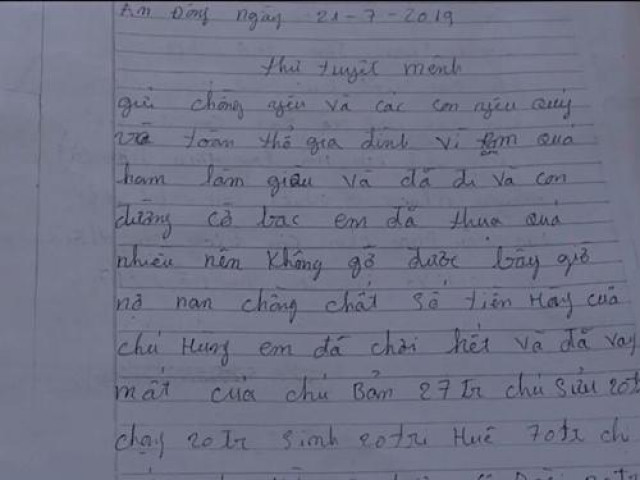 An Đồng ngày 21-7-2019
thư tuyệt mệnh
gửi chồng yêu và các con yêu quý
và toàn thể gia đình vì em quá
ham làm giàu và đã đi và con
đường cờ bạc em đã thua quá
nhiều nên không gỡ được bây giờ
nợ nan chồng chất số tiền Hay của
chú Hùng em đã chơi hết và đã vay
mất của chú Bản 27 tr chú Sửu 20tr
chạy 20tr Sinh 20tr Huê 70tr ch